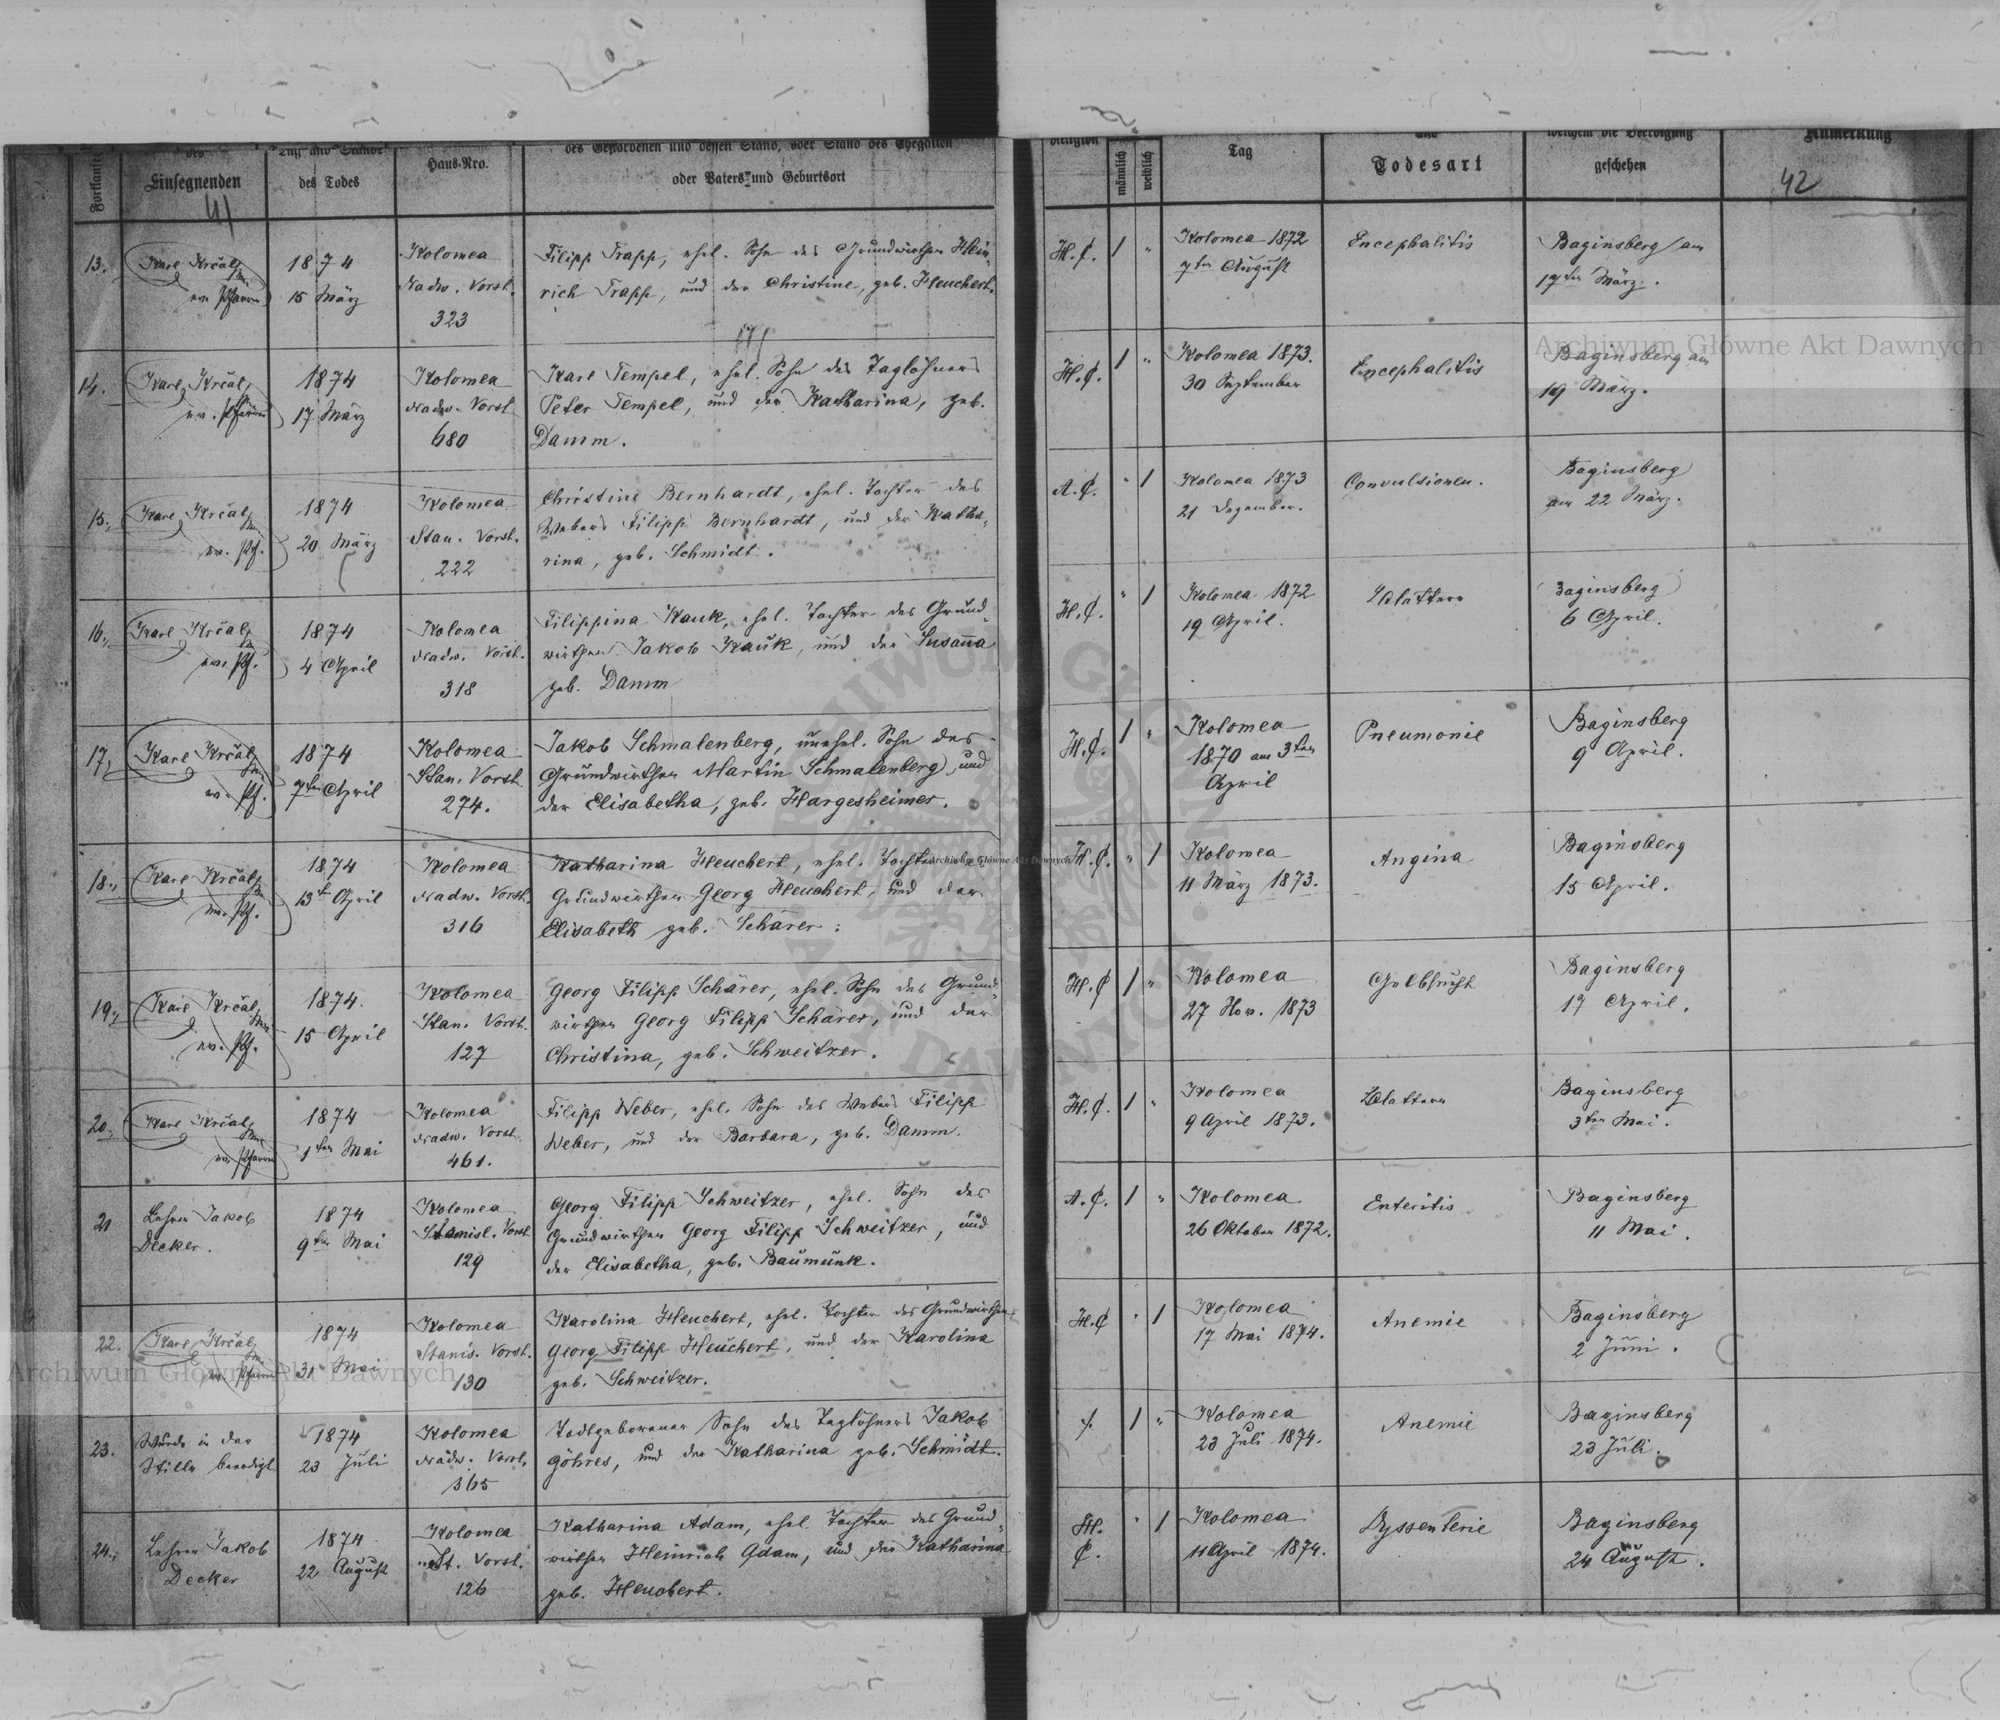 Einsegnenden
41
Tag und Stunde
des Todes
Haus-Nro.
des Gestorbenen und dessen Stand, oder Stand des Ehegatten
oder Vaters und Geburtsort
Religion
männlich
weiblich
Tag
und
Todesart
welchem die Beerdigung
geschehen
Anmerkung
42
13.
Karl Krčal
ev. Pfarrer
1874
15 März
Kolomea
Nadw. Vorst.
323
Filipp Trapp, ehel. Sohn des Grundwirthen Hein-
rich Trapp, und der Christine, geb. Heuchert.
H. C.
1
"
Kolomea 1872
7ten August
Encephalitis
Baginsberg am
17ten März.
14.
Karl Krčal
ev. Pfarrer
1874
17 März
Kolomea
Nadw. Vorst
680
Karl Tempel, ehel. Sohn des Taglöhners
Peter Tempel, und der Katharina, geb.
Damm.
H. C.
1
"
Kolomea 1873.
30 September
Encephalitis
Baginsberg am
19 März.
15.
Karl Krčal
ev. Pf.
1874
20 März
Kolomea
Stan. Vorst.
222
Christine Bernhardt, ehel. Tochter des
Webers Filipp Bernhardt, und der Katha-
rina, geb. Schmidt.
A. C.
"
1
Kolomea 1873
21 Dezember.
Convulsionen.
Baginsberg
am 22 März.
16.
Karl Krčal
ev. Pf.
1874
4 April
Kolomea
Nadw. Vorst.
318
Filippina Kauk, ehel. Tochter des Grund-
wirthen Jakob Kauk, und der Susanna
geb. Damm
H. C.
"
1
Kolomea 1872
19 April.
Blattern
Baginsberg
6 April.
17.
Karl Krčal
ev. Pf.
1874
7ten April
Kolomea
Stan. Vorst
274.
Jakob Schmalenberg, unehel. Sohn des
Grundwirthen Martin Schmalenberg, und
der Elisabetha, geb. Hargesheimer.
H. C.
1
"
Kolomea
1870 am 3ten
April
Pneumonie
Baginsberg
9 April.
18.
Karl Krčal
ev. Pf.
1874
13t April
Kolomea
Nadw. Vorst.
316
Katharina Heuchert, ehel. Tochter
Grundwirthen Georg Heuchert, und der
Elisabeth geb. Schärer.
H. C.
"
1
Kolomea
11 März 1873.
Angina
Baginsberg
15 April.
19.
Karl Krčal
ev. Pf.
1874.
15 April
Kolomea
Stan. Vorst.
127
Georg Filipp Schärer, ehel. Sohn des Grund-
wirthen Georg Filipp Schärer, und der
Christina, geb. Schweitzer.
H. C
1
"
Kolomea
27 Nov. 1873
Gelbsucht
Baginsberg
17 April.
20.
Karl Krčal
ev. Pfarrer
1874
1ten Mai
Kolomea
Nadw. Vorst.
461.
Filipp Weber, ehel. Sohn des Webers Filipp
Weber, und der Barbara, geb. Damm.
H. C.
1
"
Kolomea
9 April 1873.
Blattern
Baginsberg
3ten Mai.
21
Lehrer Jakob
Decker.
1874
9ten Mai
Kolomea
Stanisl. Vorst
129
Georg Filipp Schweitzer, ehel. Sohn des
Grundwirthen Georg Filipp Schweitzer, und
der Elisabetha, geb. Baumunk.
A. C.
1
"
Kolomea
26 Oktober 1872.
Enteritis
Baginsberg
11 Mai.
22.
Karl Krčal
ev. Pfarrer
1874
31 Mai
Kolomea
Stanis. Vorst.
130
Karolina Heuchert, ehel. Tochter des Grundwirthen
Georg Filipp Heuchert, und der Karolina
geb. Schweitzer.
H. C
"
1
Kolomea
17 Mai 1874.
Anemie
Baginsberg
2 Juni.
23.
Wurde in der
Stille beerdigt
1874
23 Juli
Kolomea
Nadw. Vorst.
365
Todtgeborener Sohn des Taglöhners Jakob
Göhres, und der Katharina geb. Schmidt.
1
"
Kolomea
23 Juli 1874.
Anemie
Baginsberg
23 Juli.
24.
Lehrer Jakob
Decker
1874
22 August
Kolomea
St. Vorst.
126
Katharina Adam, ehel. Tochter des Grund-
wirthen Heinrich Adam, und der Katharina
geb. Heuchert.
H.
C.
"
1
Kolomea
11 April 1874.
Dyssenterie
Baginsberg
24 August.
Archiwum Główne Akt Dawnych
Archiwum Główne Akt Dawnych
Archiwum Główne Akt Dawnych